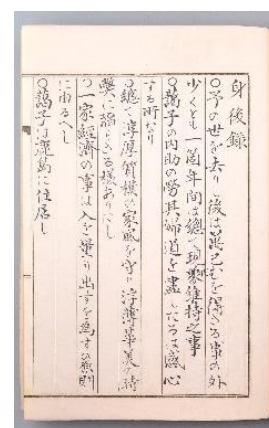 身後録
○予の世を去りし後は萬已むを得さる事の外
少くとも一箇年間は総て現状維持之事
○藹子の内助の労其婦道を盡したるは感心
する所なり
○総て淳厚質樸の家風を守り浮薄華美の
弊に陥らさる様ありたし
○一家経済の事は入を量り出すを為すの原則
に由るへし
○藹子は
に住居し